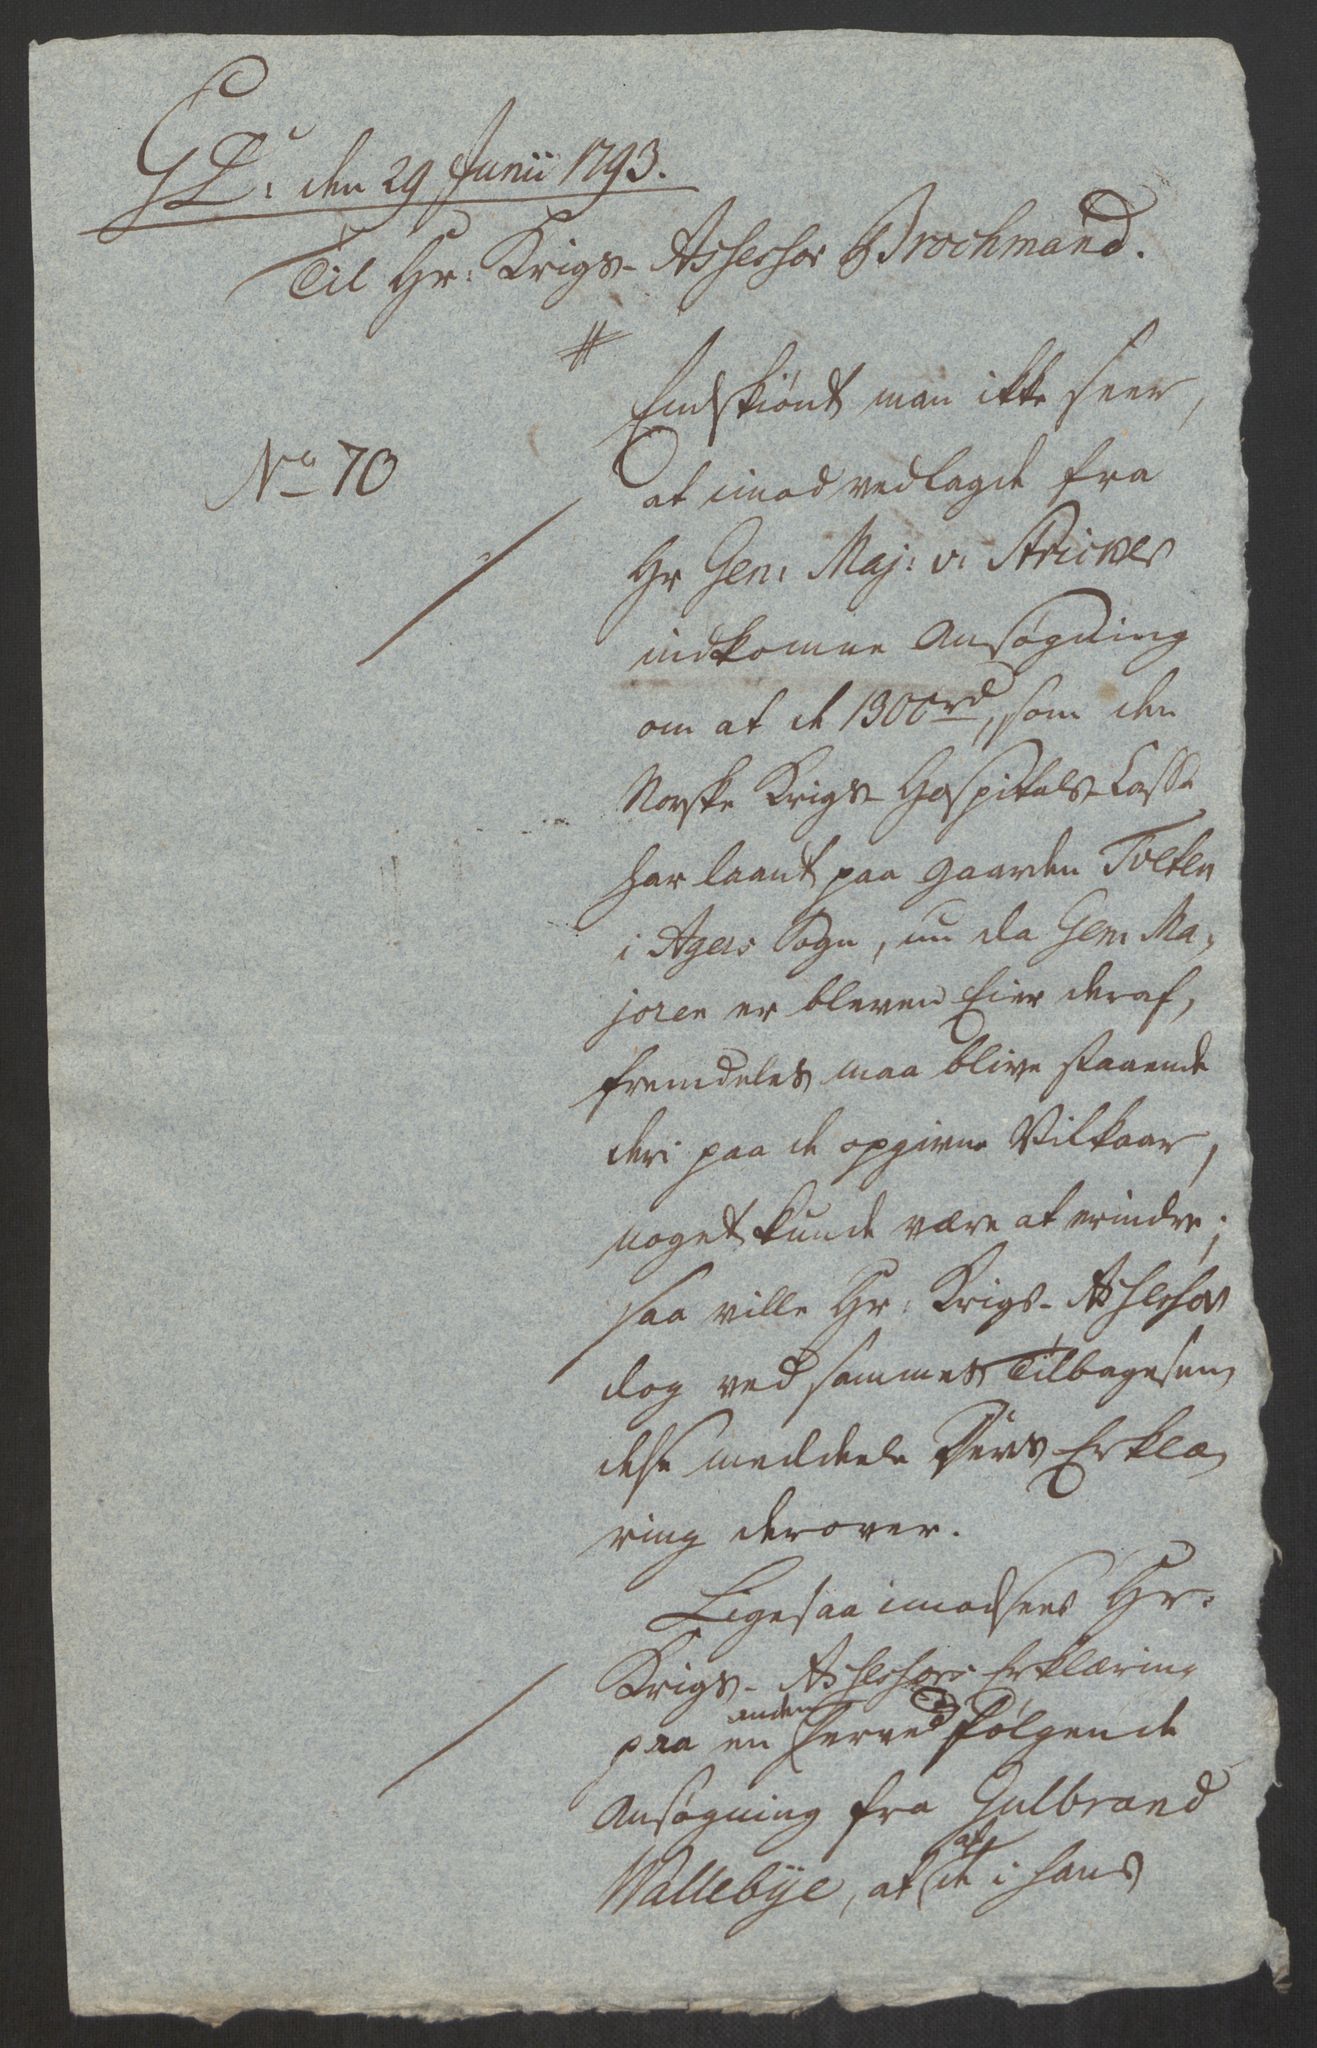 den 29 Junii 1793.
Til Hr: Krigs-Assessor Brochmand.
#
No 70
Endskiønt man ikke seer,
at imod vedlagde fra
Hr Gen: Maj: v: Stricker
indkomne Ansøgning
om at de 1300 rd, som den
Norske Krigs-Hospitals-Cassa
har laant paa Gaarden Tveten
i Agers Sogn, nu da Gen: Ma-
joren er bleven Eier deraf,
fremdeles maa blive staaende
deri paa de opgivne Vilkaar,
noget kunde være at erindre;
saa ville Hr: Krigs-Assessor
dog ved sammes Tilbagesen-
delse meddeele Deres Erklæ-
ring derover.
Ligesaa imodsees Hr:
Krigs-Assessors Erklæring
paa en anden herved følgende
Ansøgning fra Gulbrand
Wallebÿe, at af de i hans